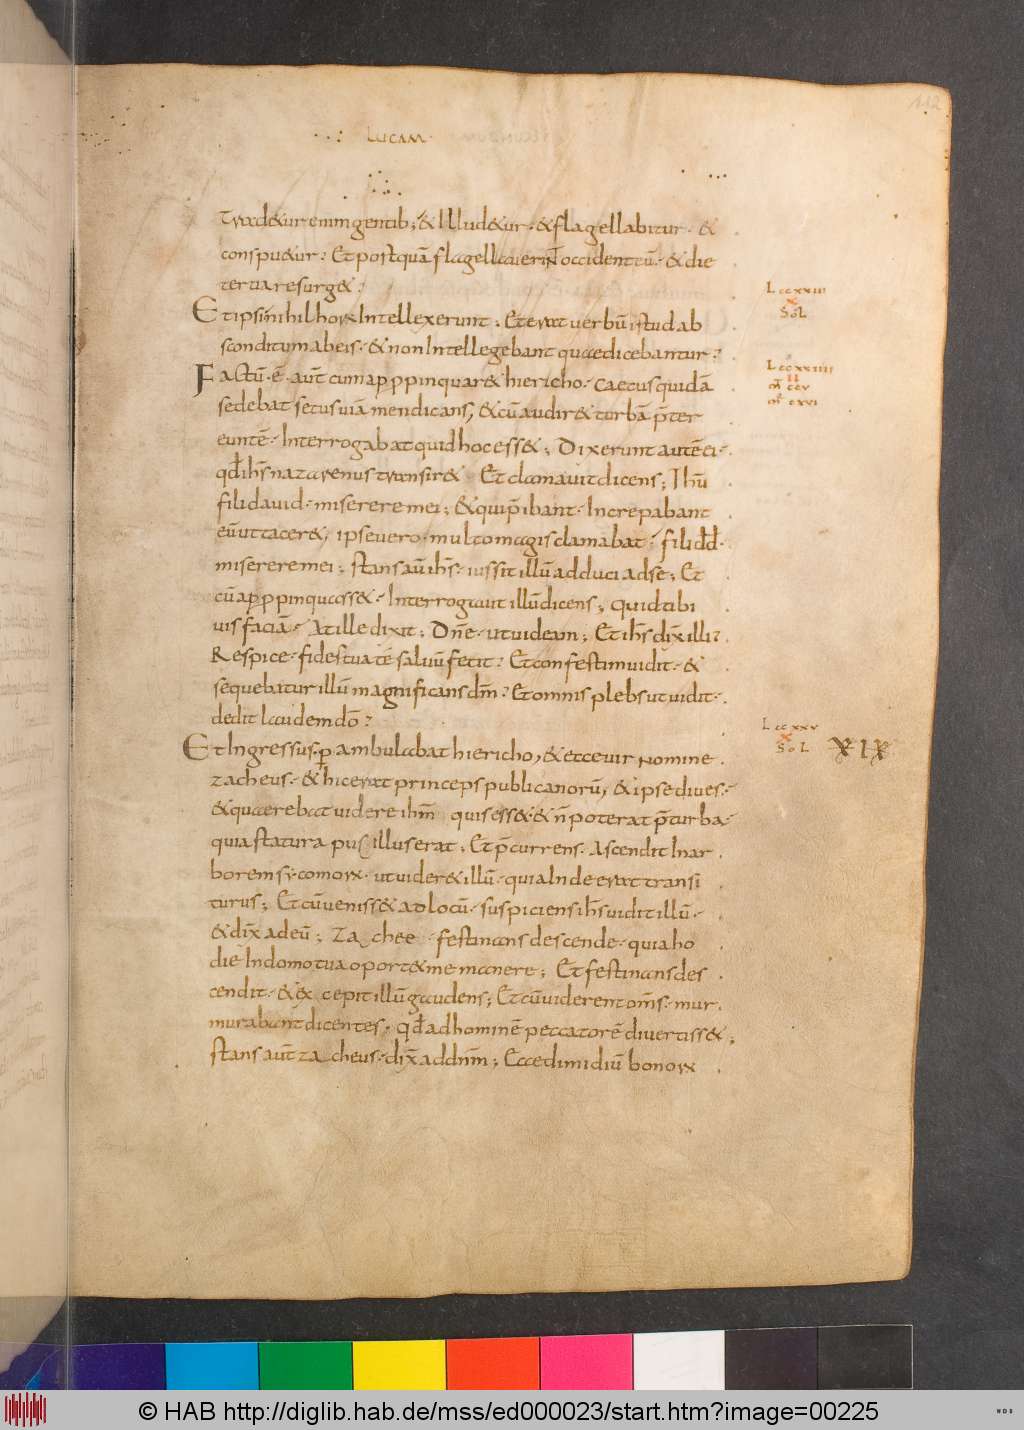 112
LUCAM
Tradetur enim gentib; & Illudetur · & flagellabitur · &
conspuetur : Et postquā flagellauerint occident eū · & die
tertia resurget :
Et ipsi nihil horum Intellexerunt ; Et erat uerbū istud ab
sconditum ab eis · & non Intellegebant quae dicebantur :
Factū · ē · aut̄ cum appropinquaret hiericho · Caecus quidā
sedebat secus uiā mendicans, & cū audiret turbā p̄ter
euntē · Interrogabat quid hoc esset ; Dixerunt autē ei ·
qđ ih̄s nazarenus transiret Et clamauit dicens ; Ih̄u
fili dauid · miserere mei ; & qui p̄ibant · Increpabant
eū ut taceret, ipse uero · multo magis clamabat : fili dd̄ ·
miserere mei ; stans aū ih̄s · iussit illū adduci ad se ; Et
cū appropinquasset · Interrogauit illū dicens ; quid tibi
uis faciā · At ille dixit ; Dn̄e · ut uideam ; Et ih̄s dix̄ illi :
Respice · fides tua te saluū fecit : Et confestim uidit · &
sequebatur illū magnificans dm̄ : Et omnis plebs ut uidit ·
dedit laudem dō :
Et Ingressus · perambulabat hiericho, & ecce uir Nomine
zacheus · & hic erat princeps publicanorū, & ipse diues ·
& quaerebat uidere ih̄m quis esset · & n̄ poterat p̄ turba ·
quia statura pusillus erat ; Et p̄currens · Ascendit In ar
borem sycomorum · ut uideret illū · quia Inde erat transi
turus ; Et cū uenisset ad locū · suspiciens ih̄s uidit illū ·
& dix̄ ad eū ; Zachee · festinans descende · quia ho
die In domo tua oportet me manere ; Et festinans des
cendit · & excepit illū gaudens ; Et cū uiderent om̄s · mur
murabant dicentes · qđ ad hominē peccatorē diuertisset ;
stans aut̄ zacheus · dix̄ ad dn̄m ; Ecce dimidiū bonorum
L ccxxiii
x
SoL
L ccxxiiii
II
m̄ ccv
m̄ cxvi
L ccxxv
x
SoL
XIX
© HAB http://diglib.hab.de/mss/ed000023/start.htm?image=00225